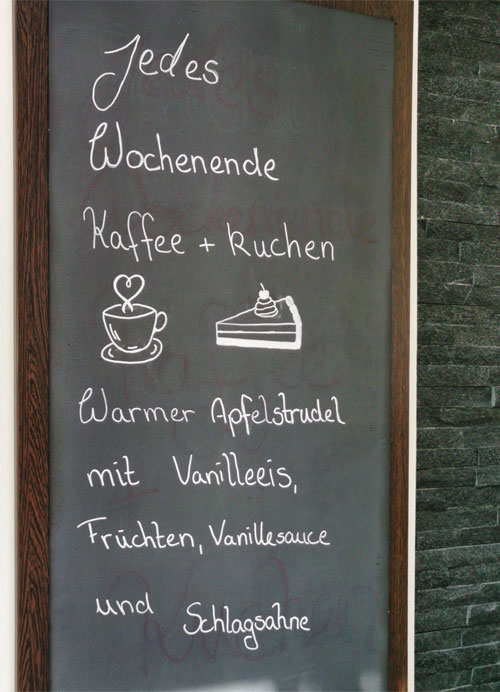 Jedes
Wochenende
Kaffee + Kuchen
Warmer Apfelstrudel
mit Vanilleeis,
Früchten, Vanillesauce
und Schlagsahne